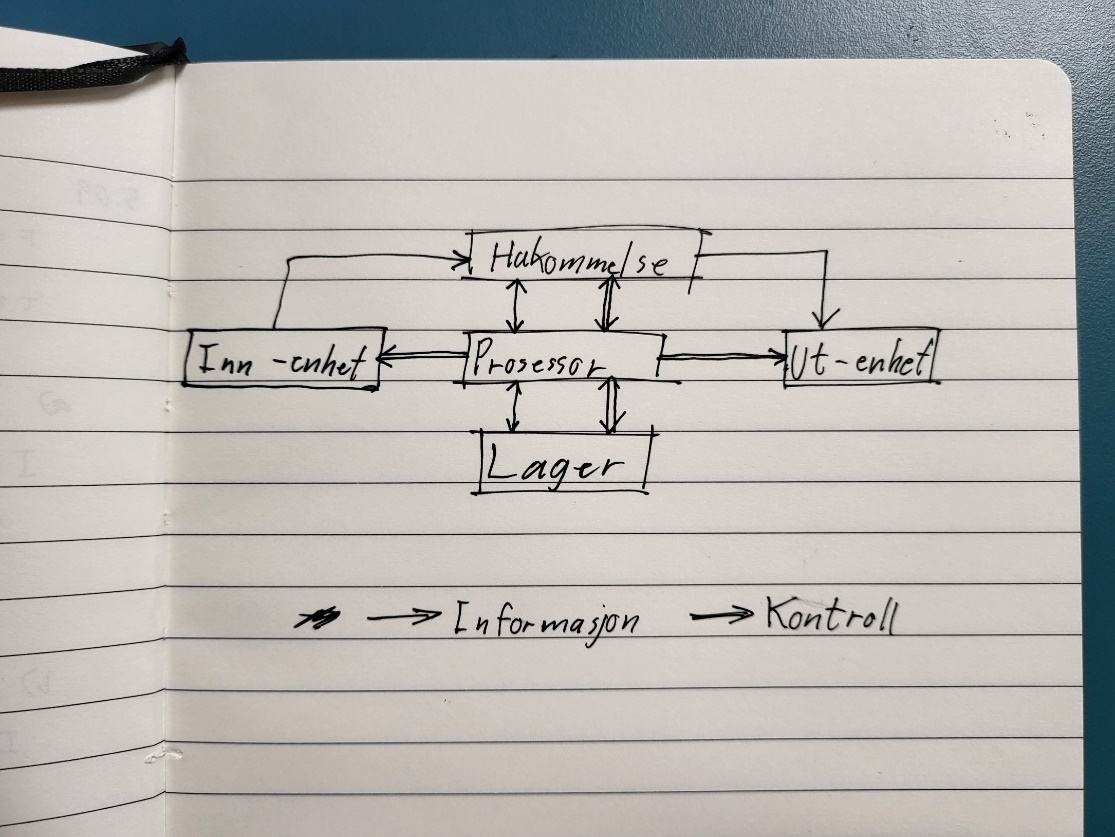 Hukommelse
Inn-enhet Prosessor Ut-enhet
Lager
Informasjon Kontroll